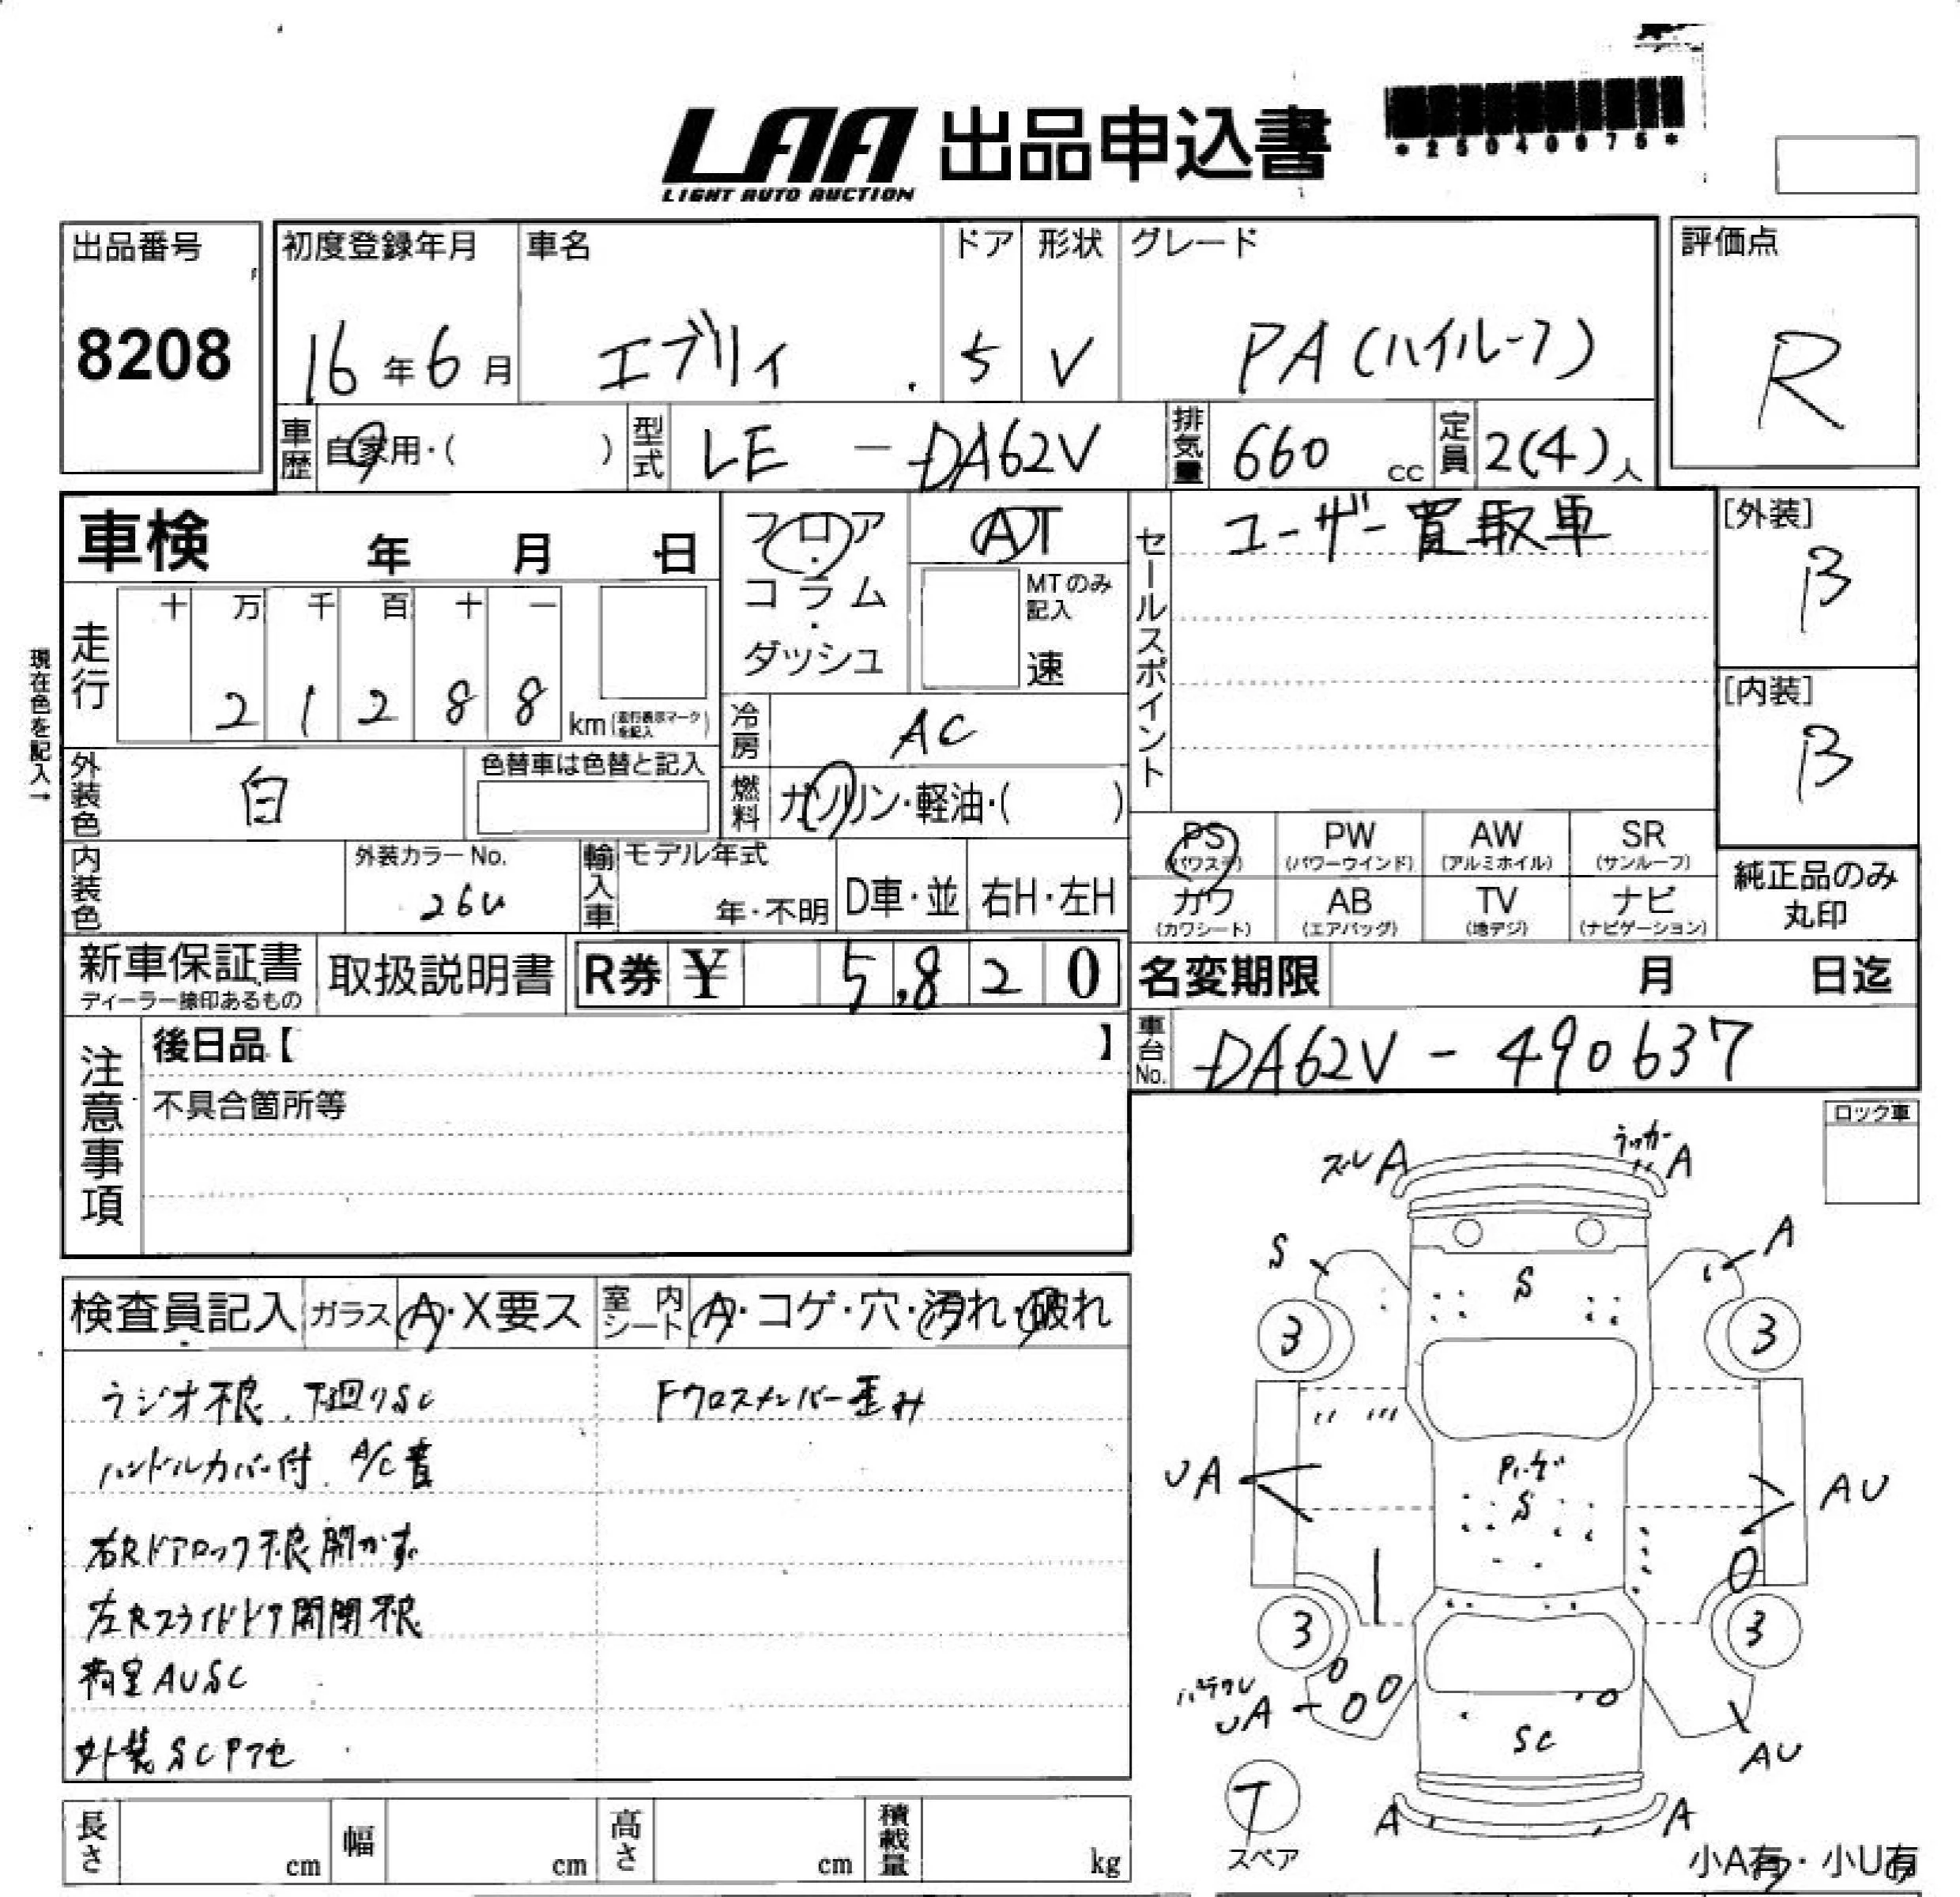 LAA 出品申込書
LIGHT AUTO AUCTION
*25040975*
出品番号
8208
初度登録年月
16年6月
車名
エブリィ
ドア
5
形状
V
グレード
PA(ハイルーフ)
評価点
R
車歴
自家用・( )
型式
LE - DA62V
排気量
660 cc
定員
2(4)人
車検 年 月 日
フロア・コラム・ダッシュ
AT
MTのみ記入
速
セールスポイント
ユーザー買取車
[外装]
B
[内装]
B
現在色を記入→
走行
十 万 千 百 十 一
2 1 2 8 8 km (走行表示マークを記入)
冷房
AC
外装色
白
色替車は色替と記入
燃料
ガソリン・軽油・( )
PS (パワステ)
PW (パワーウインド)
AW (アルミホイル)
SR (サンルーフ)
カワ (カワシート)
AB (エアバッグ)
TV (地デジ)
ナビ (ナビゲーション)
純正品のみ丸印
内装色
外装カラーNo.
26U
輸入車
モデル年式
年・不明
D車・並
右H・左H
新車保証書
ディーラー捺印あるもの
取扱説明書
R券 ¥ 5,820
名変期限 月 日迄
注意事項
後日品【 】
不具合箇所等
車台No.
DA62V - 490637
ロック車
検査員記入
ガラス
A・X要ス
室内シート
A・コゲ・穴・汚れ・破れ
ラジオ不良 下廻りSC
Fクロスメンバー歪み
ハンドルカバー付 A/C
右Rドアロック不良 開かず
左Rスライドドア開閉不良
荷室AUSC
外装SC
ズレA
ラッカー A
S
A
S
3
3
UA
S
AU
3
3
UA
SC
AU
T
スペア
A
A
小A有・小U有
長さ cm
幅 cm
高さ cm
積載量 kg